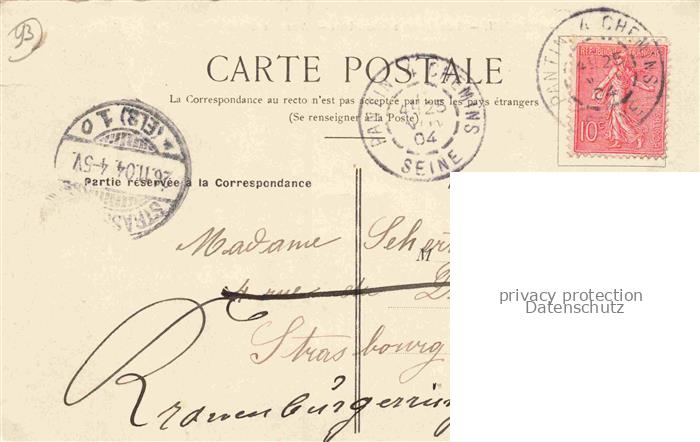 93
CARTE POSTALE
La Correspondance au recto n'est pas acceptée par tous les pays étrangers
(Se renseigner à la Poste)
PANTIN 4 CHEMINS
25
04
SEINE
PANTIN 4 CHEMINS
25
04
10c
STRASS
26.11.04. 4-5V.
*(ELS) 1 0
Partie réservée à la Correspondance
Madame Scher
M
4 rue du
Strasbourg
Kronenburgerring
privacy protection
Datenschutz